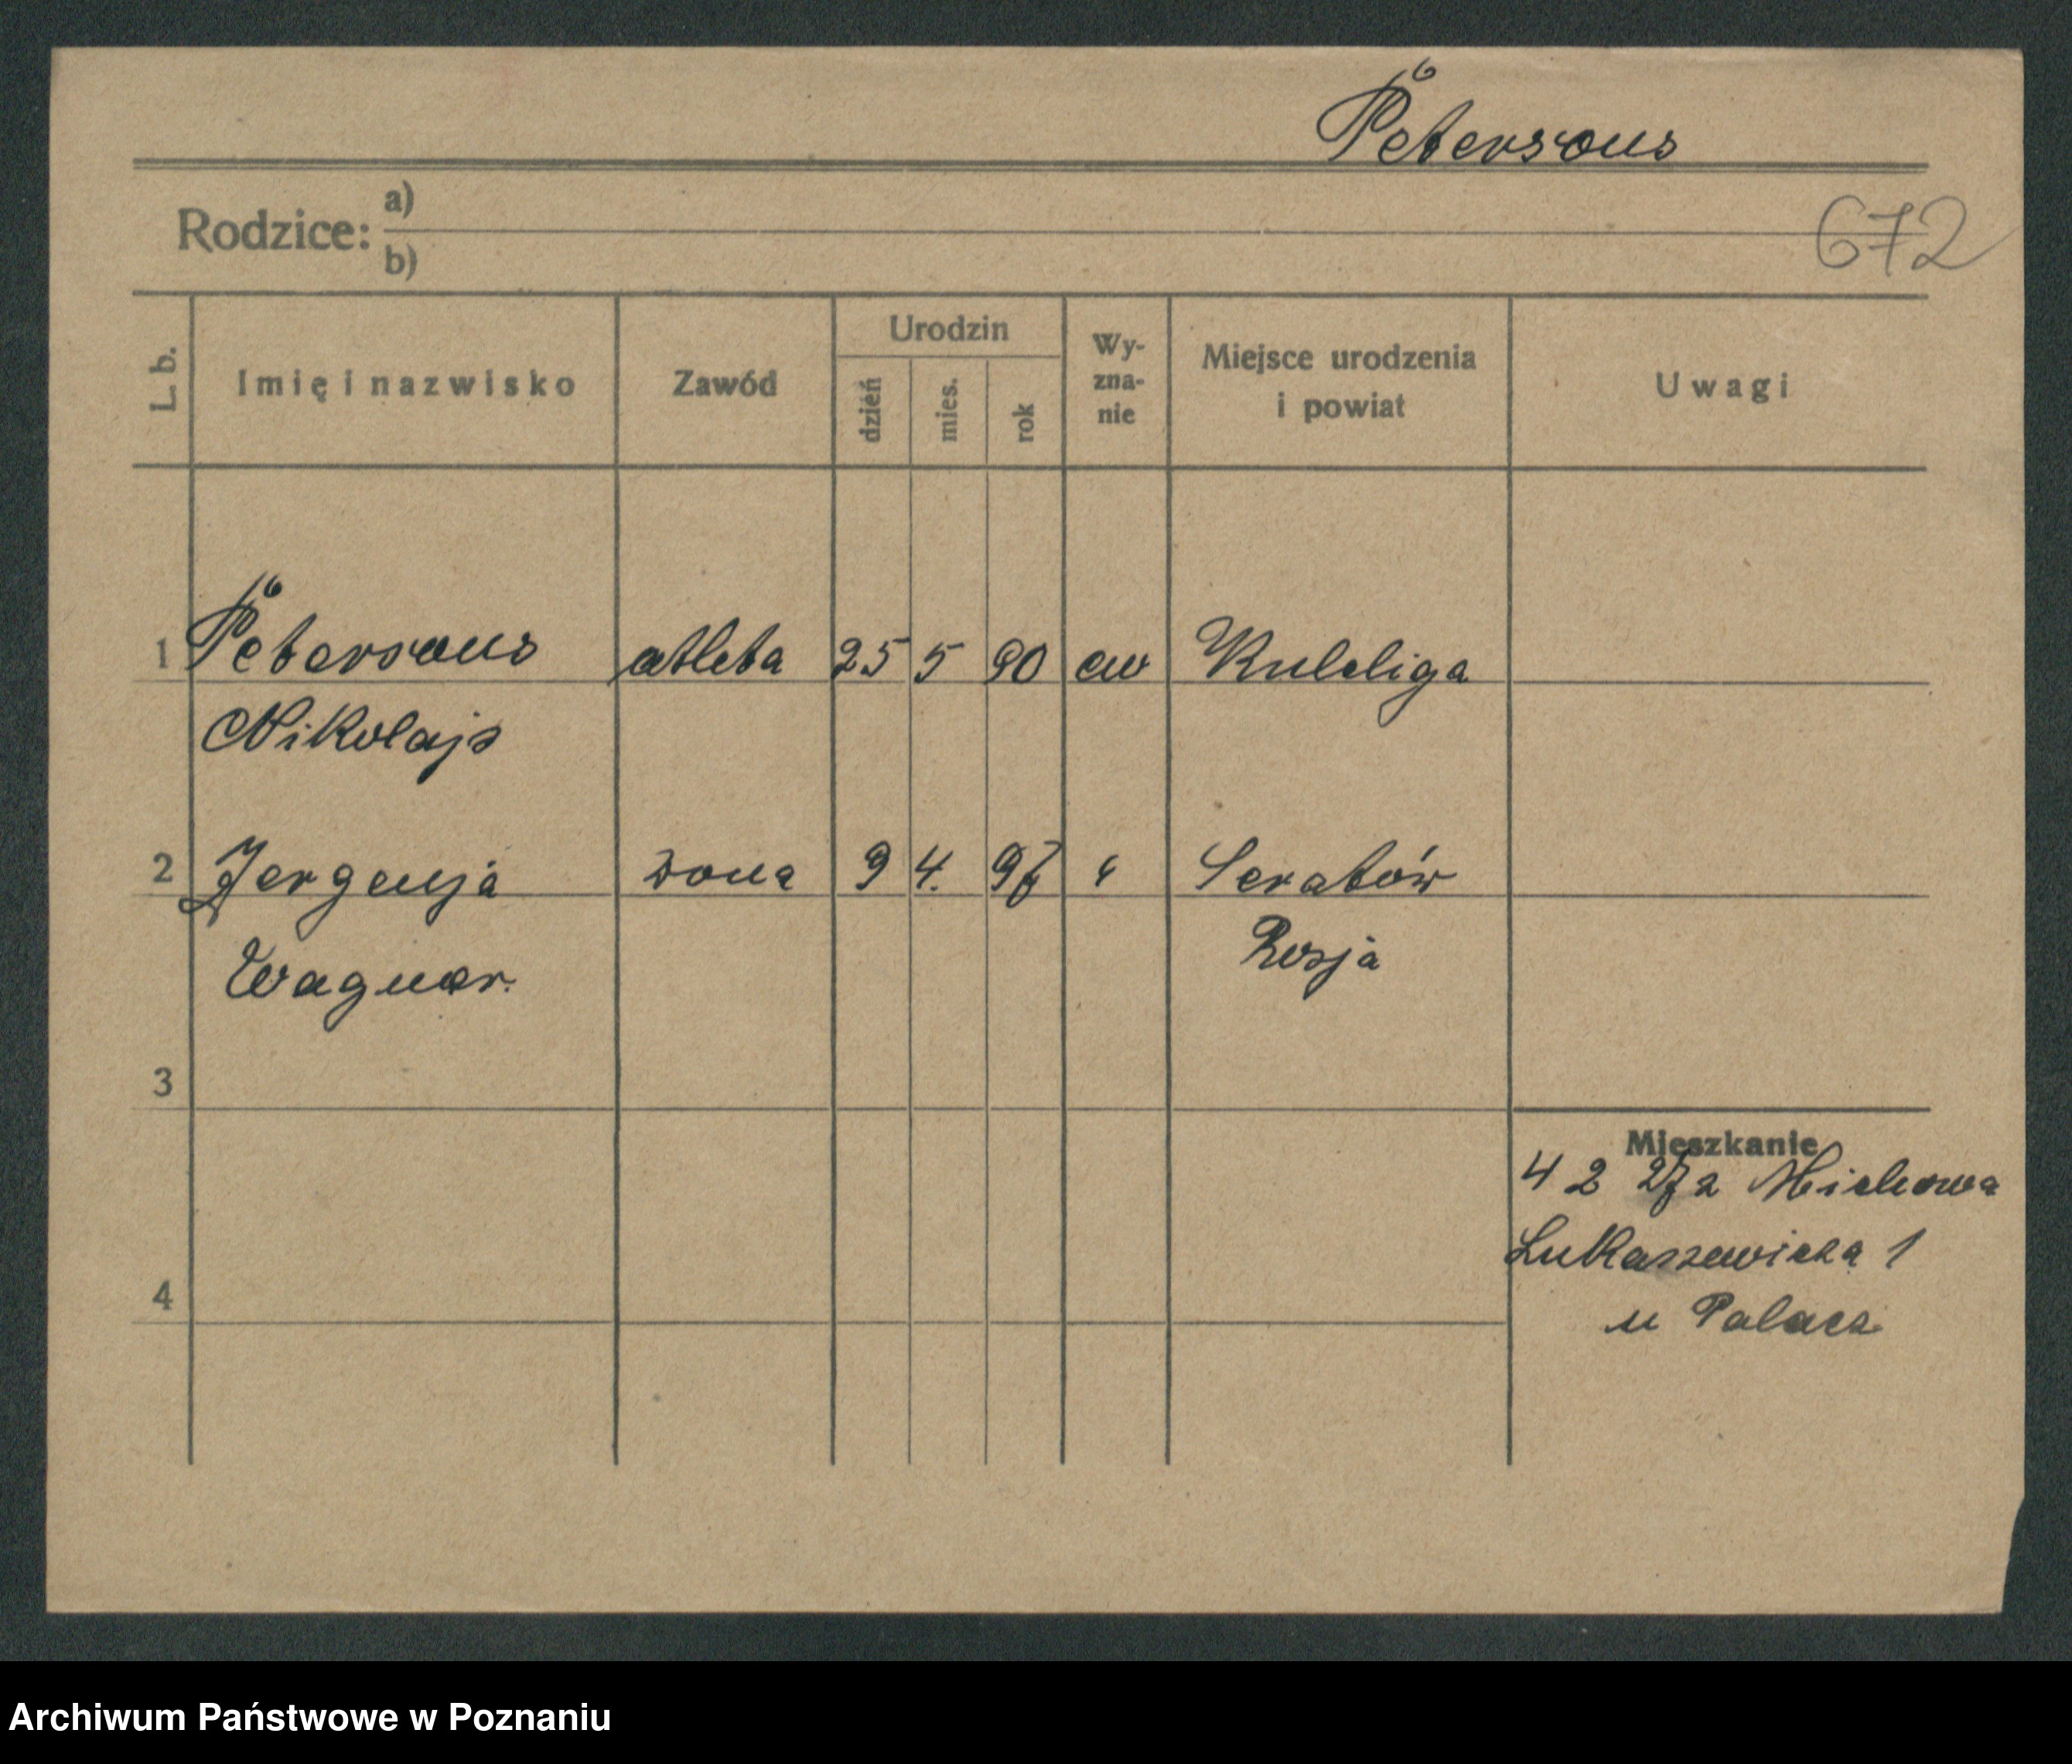 Petersons
Rodzice: a)
b)
672
L. b.
Imię i nazwisko
Zawód
Urodzin
dzień
mies.
rok
Wy-
zna-
nie
Miejsce urodzenia
i powiat
Uwagi
1 Petersons atleta 25 5 90 ew Kuldiga
Nikolajs
2 Jergenja żona 9 4. 97 " Seratów
Wagner. Rosja
3
Mieszkanie
4 2 27a
Łukaszewicza 1
4
u Palacz
Archiwum Państwowe w Poznaniu